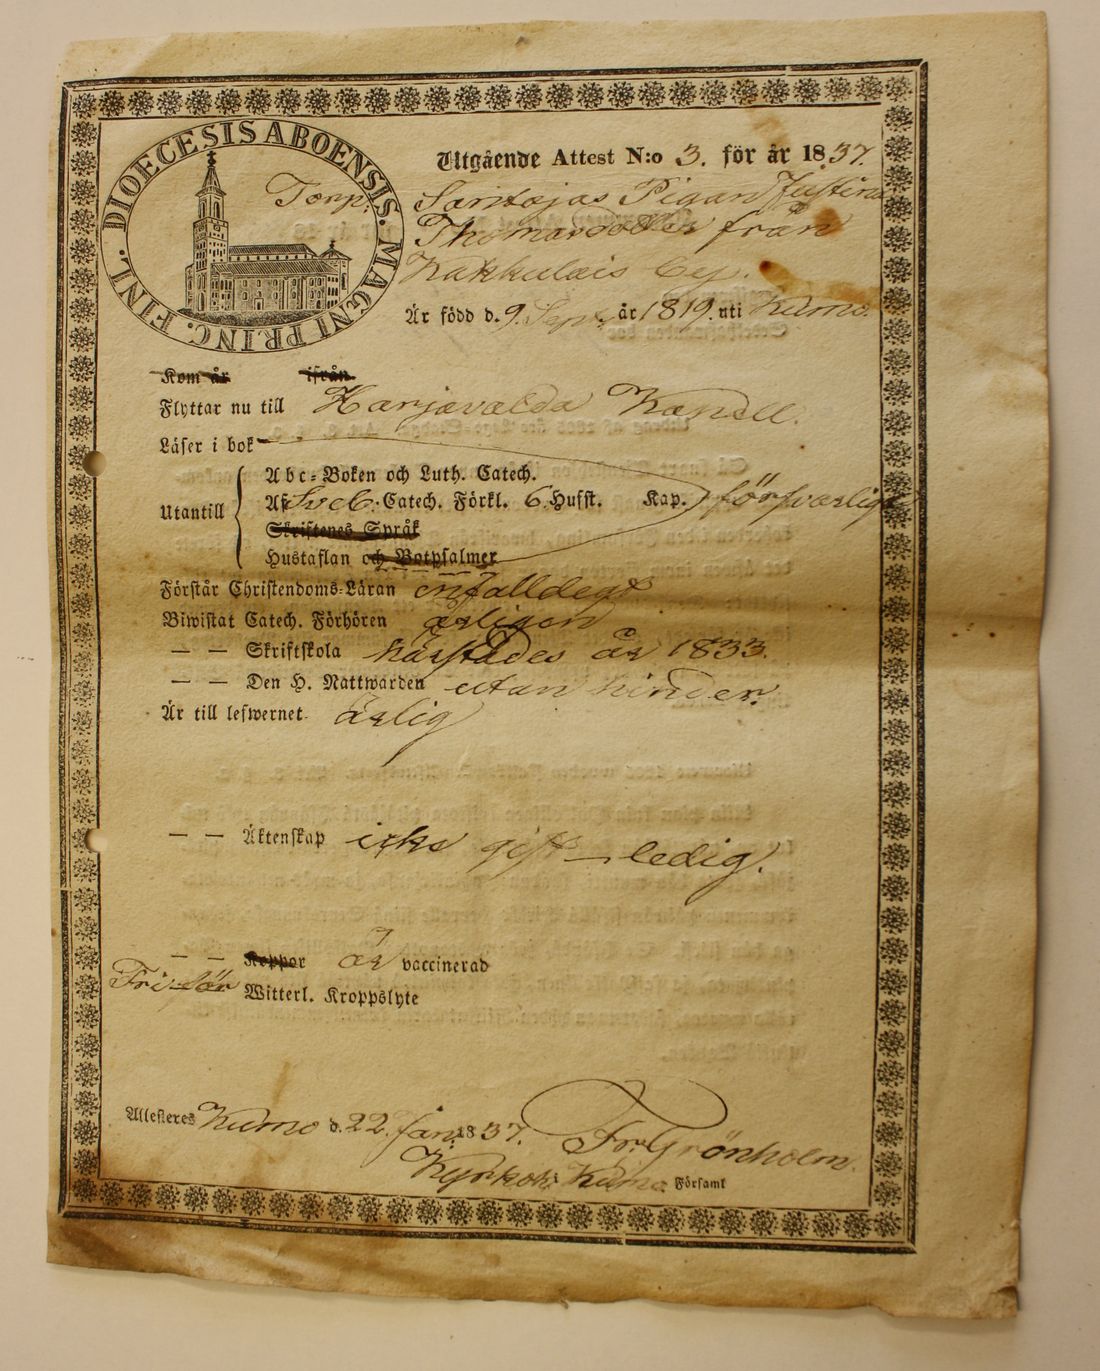 DIOECESIS ABOENSIS. MAGNI PRINC. FINL.
Utgående Attest N:o 3. för år 1837.
Torp: Saritajas Pigan Justina
Thomasdotter från
Kakkulais by.
Är född d. 9. Sept. år 1819. uti Kumo.
Kom år ifrån
Flyttar nu till Harjavalda Kapell.
Läser i bok
Abc-Boken och Luth. Catech.
Utantill Af Sveb. Catech. Förkl. 6. Hufst. Kap. försvarligt
Skriftenes Språk
Hustaflan och Botpsalmer
Förstår Christendoms-Läran enfalldegt
Biwistat Catech. Förhören årligen
— — Skriftskola härstädes år 1833.
— — Den H. Nattwarden utan hinder.
Är till lefwernet ärlig
— — Äktenskap icke gift – ledig.
— — Koppor är vaccinerad
Fri för Witterl. Kroppslyte
Attesteras Kumo d. 22. Jan. 1837.
Fr. Grönholm.
Kyrkoh. i Kumo Församl